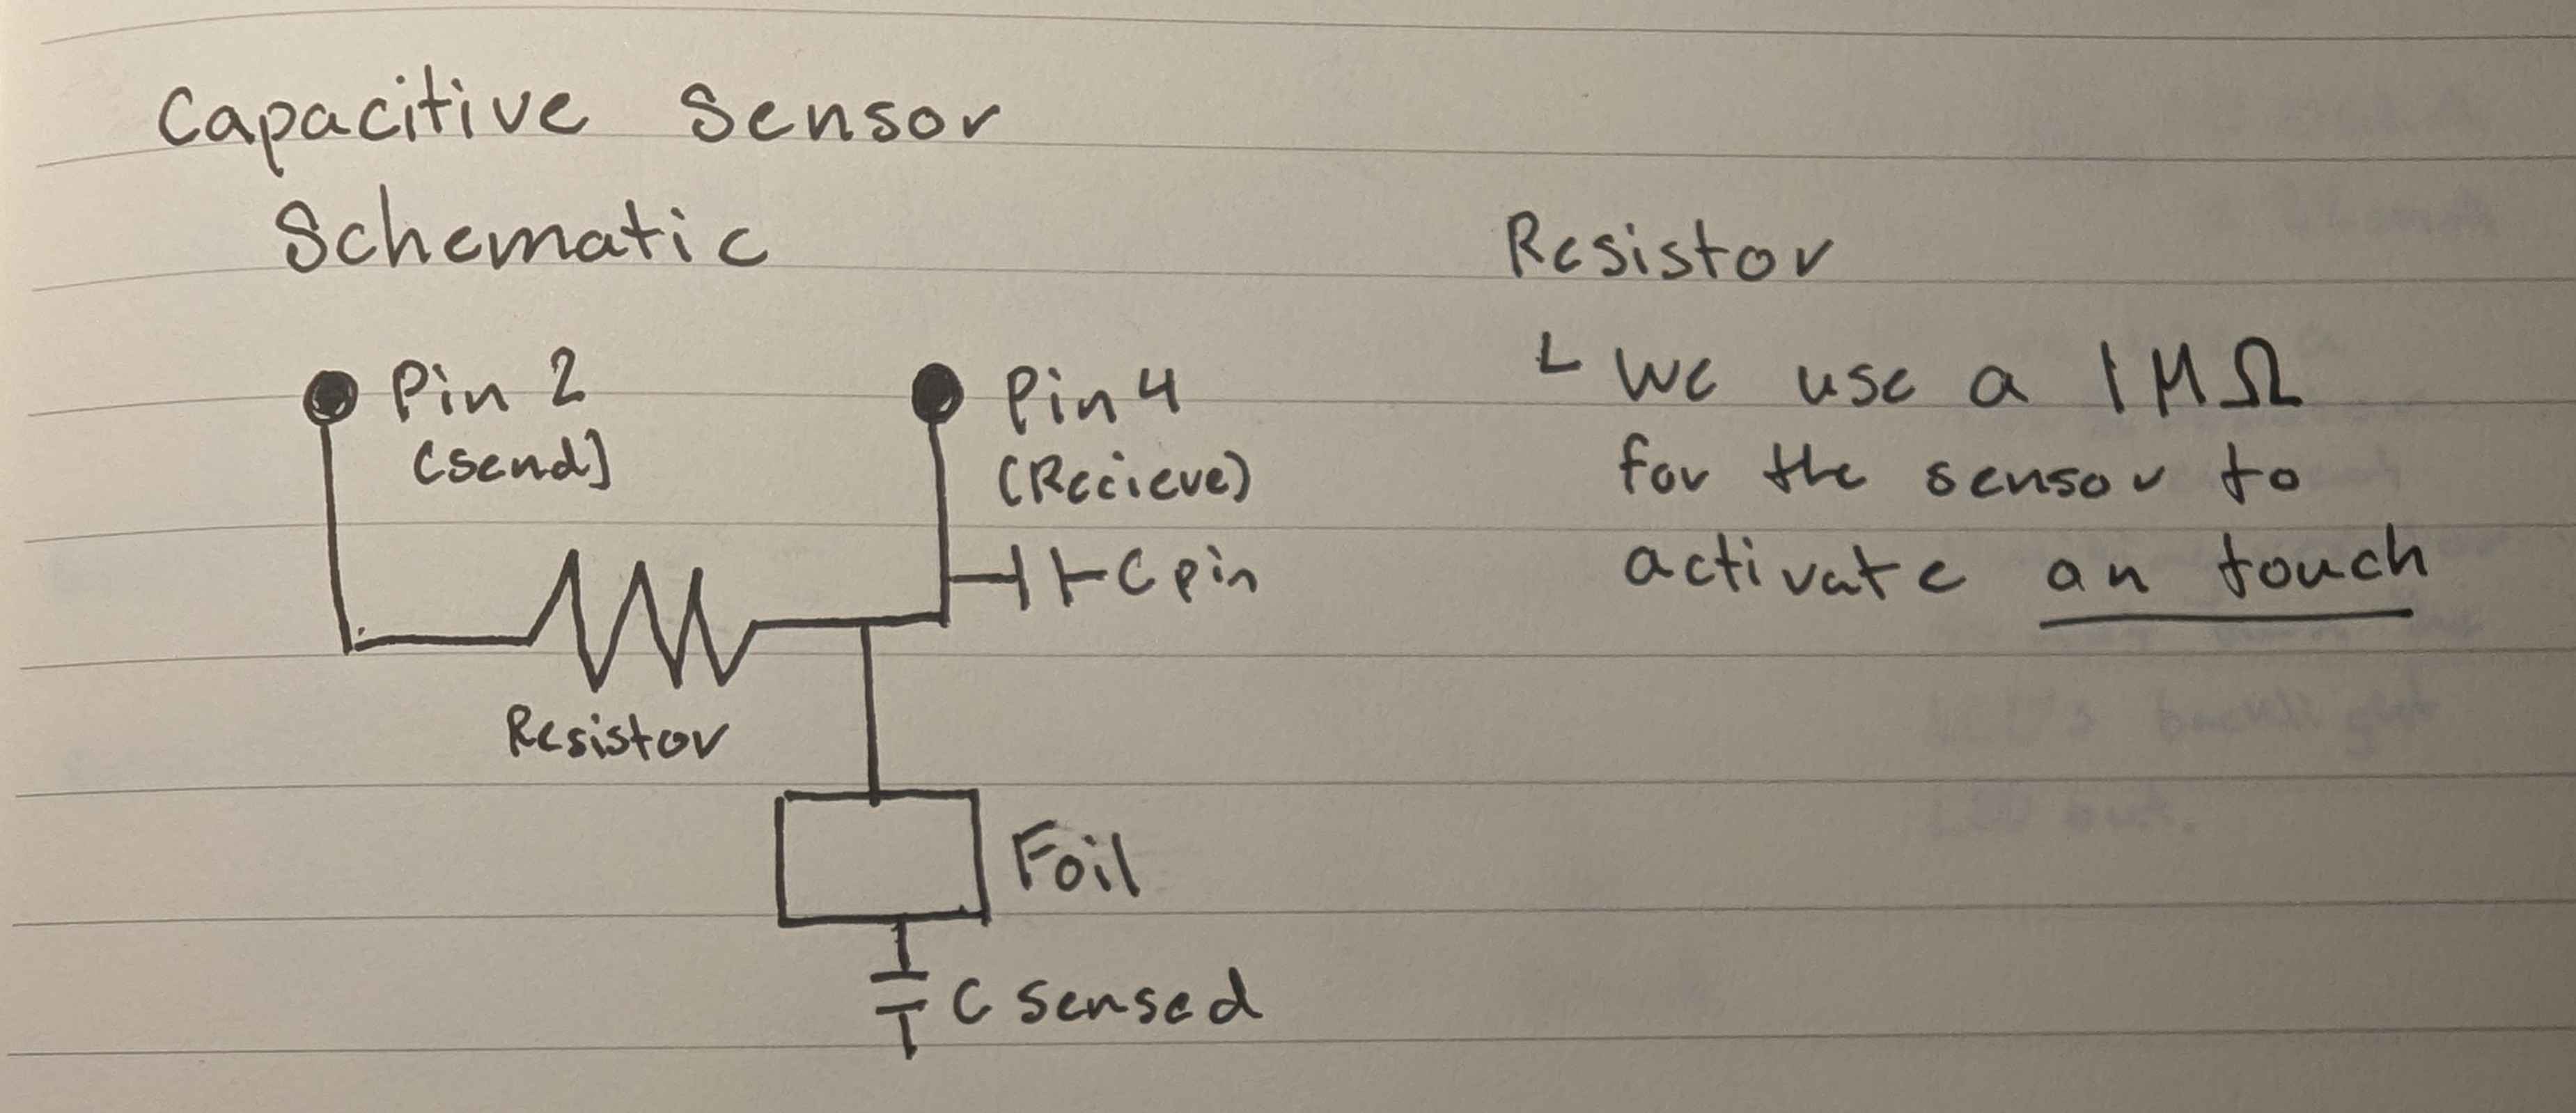 Capacitive Sensor
Schematic
Pin 2
(send)
Pin 4
(Recieve)
C pin
Resistor
Foil
C sensed
Resistor
We use a 1MΩ
for the sensor to
activate an touch